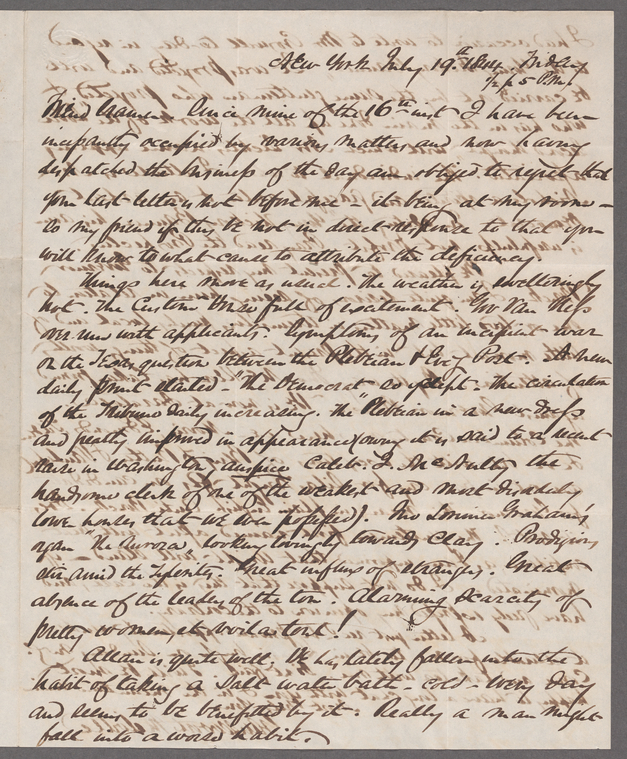 New York July 19th 1844. Friday
½ p 5 P.M.
Friend Gansevoort. Since mine of the 16th inst I have been
incessantly occupied by various matters and now having
despatched the business of the day am obliged to regret that
your last letter is not before me - it being at my room -
So my friend if this be not in direct response to that you
will know to what cause to attribute the deficiency.
Things here move as usual. The weather is swelteringly
hot. The Custom House full of excitement. Gov Van Ness
over-run with applicants. Symptoms of an incipient war
on the Texas question between the Plebeian & Evg Post. A new
daily print started - "The Democrat" so yclept. The circulation
of the Tribune daily increasing. The "Plebeian in a new dress
and greatly improved in appearance (owing it is said to a recent
in Washington, auspice Caleb J. McNulty the
handsome clerk of one of the weakest and most disorderly
lower houses that we ever possessed). Mr Lorimer Graham's
organ "The Aurora" looking lovingly towards Clay. Prodigious
stir amid the . Great influx of strangers. Great
absence of the leaders of the ton. Alarming scarcity of
pretty women, et
Allan is quite well. He has lately fallen into the
habit of taking a salt water bath - cold - every day
and seems to be benefited by it. Really a man might
fall into a worse habit.